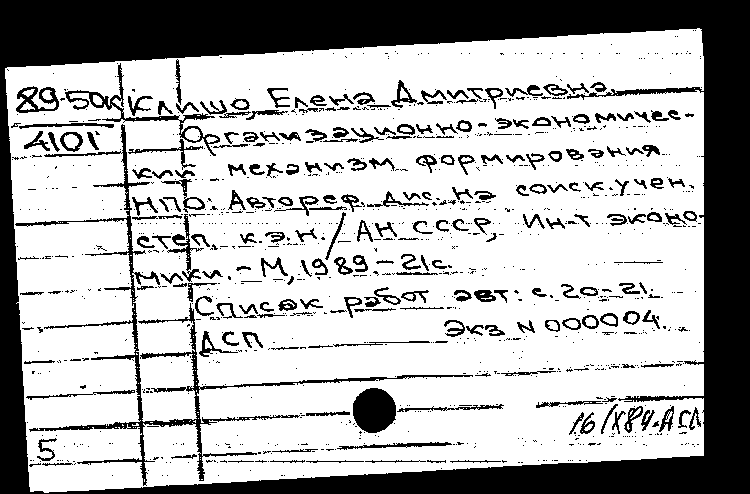 89-50к Клишо, Елена Дмитриевна.
4101 Организационно-экономичес-
кий механизм формирования
НПО: Автореф. дис. на соиск. учен.
степ. к.э.н. / АН СССР, Ин-т эконо-
мики. - М, 1989. - 21с.
Список работ авт: с. 20-21.
ДСП Экз N 000004.
5